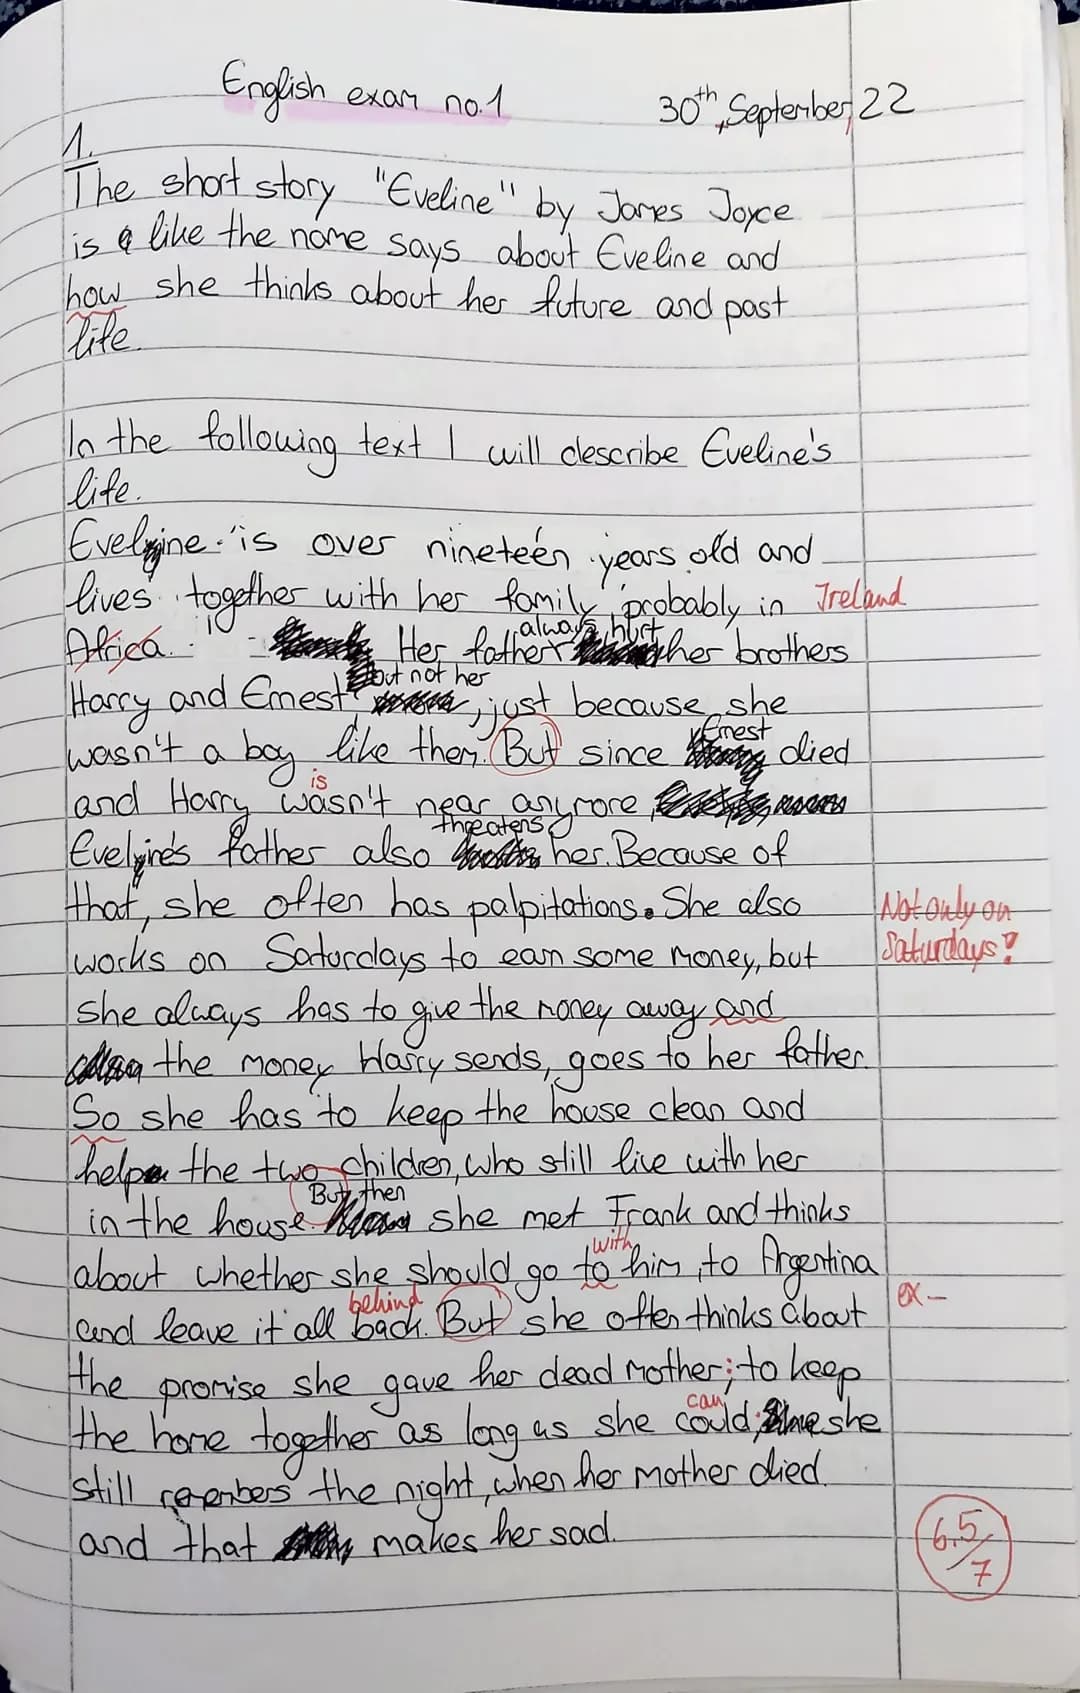 English exam no.1 30th, September, 22
1.
The short story "Eveline" by James Joyce
is like the name says about Eveline and
how she thinks about her future and past
life.
In the following text I will describe Eveline's
life.
Eveline is over nineteen years old and
lives together with her family, probably in Ireland
Africa. Her father always hurt her brothers
Harry and Ernest but not her, just because she
wasn't a boy like them. But since Ernest died
and Harry wasn't is near anymore
Eveline's father also threatens her. Because of
that, she often has palpitations. She also
works on Saturdays to earn some money, but
Not only on
Saturdays?
she always has to give the money away and
the money Harry sends, goes to her father.
So she has to keep the house clean and
help the two children, who still live with her
in the house. But then she met Frank and thinks
about whether she should go to with him, to Argentina
and leave it all back behind. But she often thinks about
ex-
the promise she gave her dead mother; to keep
the home together as long as she could can; she
still remembers the night, when her mother died
and that makes her sad.
6.5/7